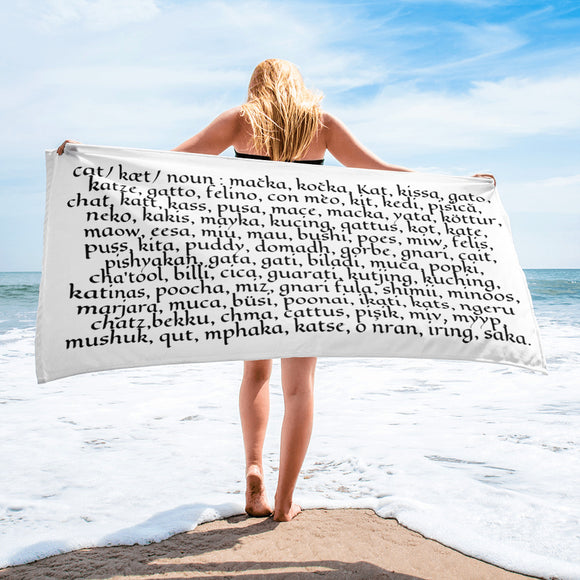 cat/ kæt/ noun : mačka, kočka, Kat, kissa, gato,
katze, gatto, felino, con mèo, kit, kedi, pisică,
chat, katt, kass, pusa, maçe, macka, yata, köttur,
neko, kakis, mayka, kucing, qattus, kot, kate,
maow, eesa, miu, mau, bushi, poes, miw, felis,
puss, kita, puddy, domadh, gorbe, gnari, cait,
pishyakah, gata, gati, biladi, muca, popki,
cha'tool, billi, cica, guarati, kutjing, kuching,
katinas, poocha, miz, gnari fula, shimii, minoos,
marjara, muca, büsi, poonai, ikati, kats, ngeru
chatz,bekku, chma, cattus, pişik, miv, myyp
mushuk, qut, mphaka, katse, o nran, iring, saka.